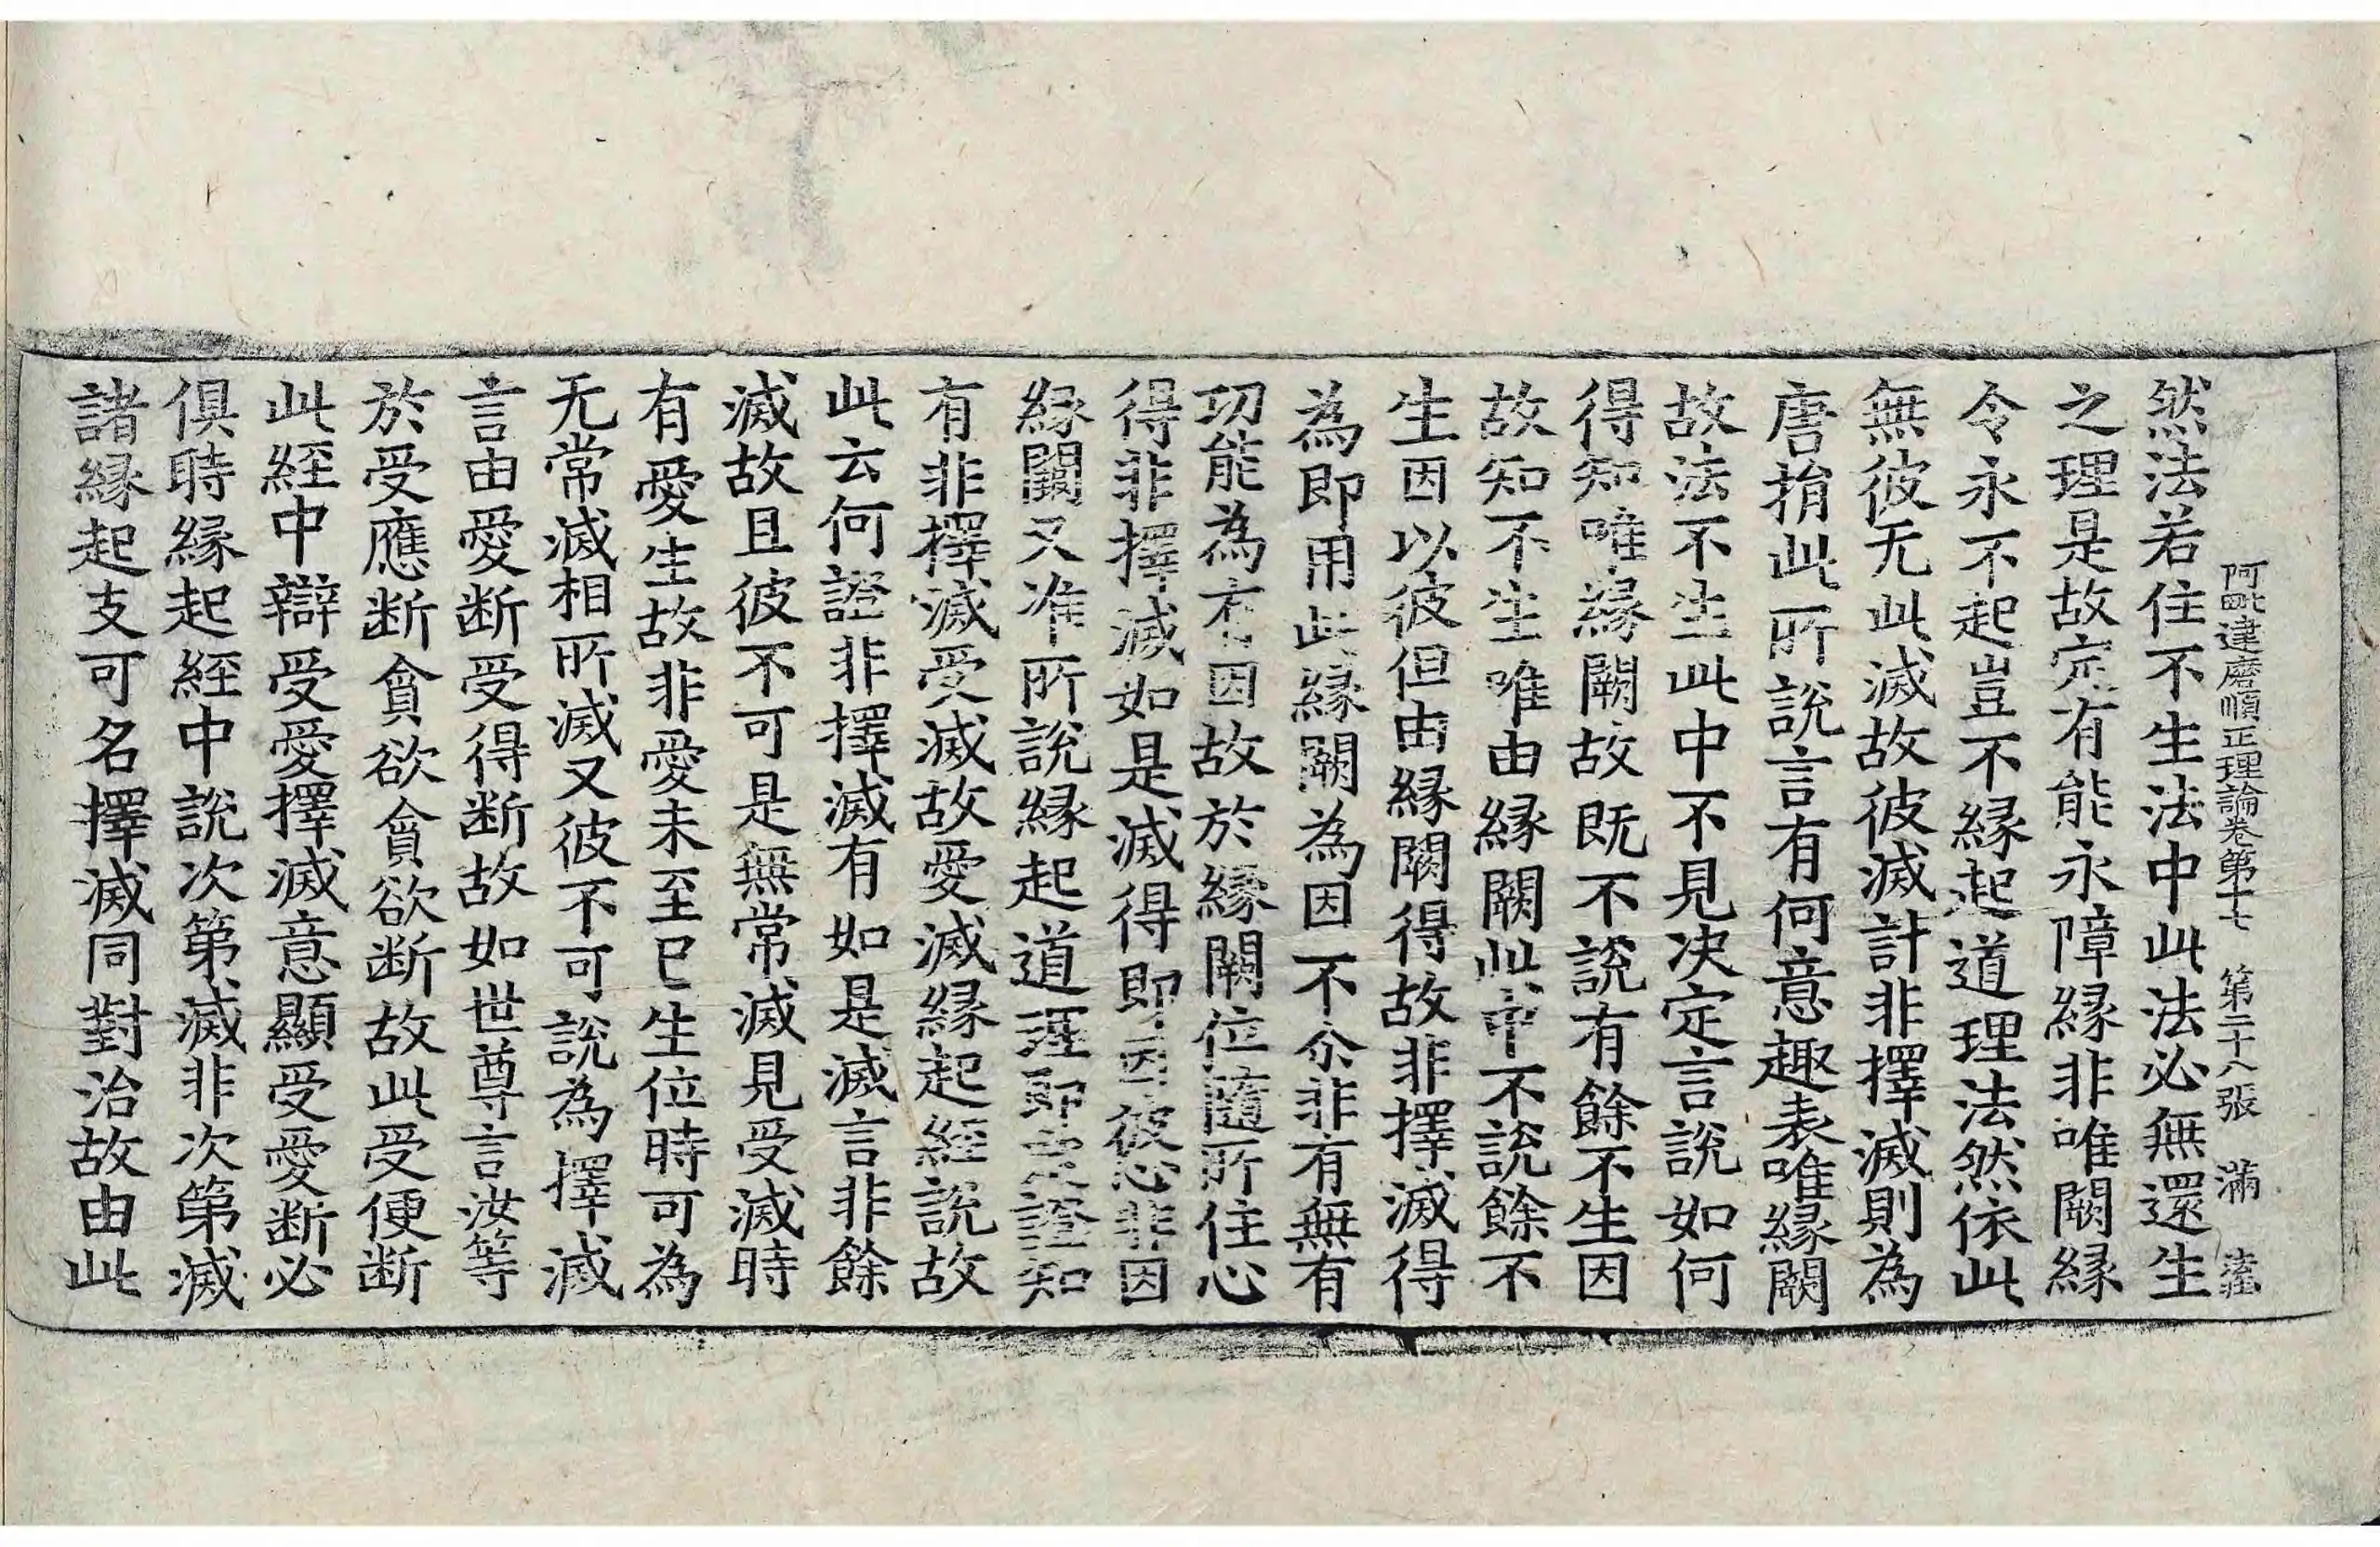 阿毗達磨順正理論卷第十七　第二十八張　滿
然法若住不生法中此法必無還生
之理是故定有能永障緣非唯闕緣
令永不起豈不緣起道理法然依此
無彼无此滅故彼滅計非擇滅則為
唐捐此所說言有何意趣表唯緣闕
故法不生此中不見决定言說如何
得知唯緣闕故既不說有餘不生因
故知不生唯由緣闕此中不說餘不
生因以彼但由緣闕得故非擇滅得
為即用此緣闕為因不尒非有無有
功能為有因故於緣闕位隨所住心
得非擇滅如是滅得即因彼心非因
緣闕又准所說緣起道理即定證知
有非擇滅受滅故愛滅緣起經說故
此云何證非擇滅有如是滅言非餘
滅故且彼不可是無常滅見受滅時
有愛生故非愛未至已生位時可為
无常滅相所滅又彼不可說為擇滅
言由愛断受得断故如世尊言汝等
於受應断貪欲貪欲断故此受便断
此經中辯受愛擇滅意顯受愛断必
俱時緣起經中說次第滅非次第滅
諸緣起支可名擇滅同對治故由此